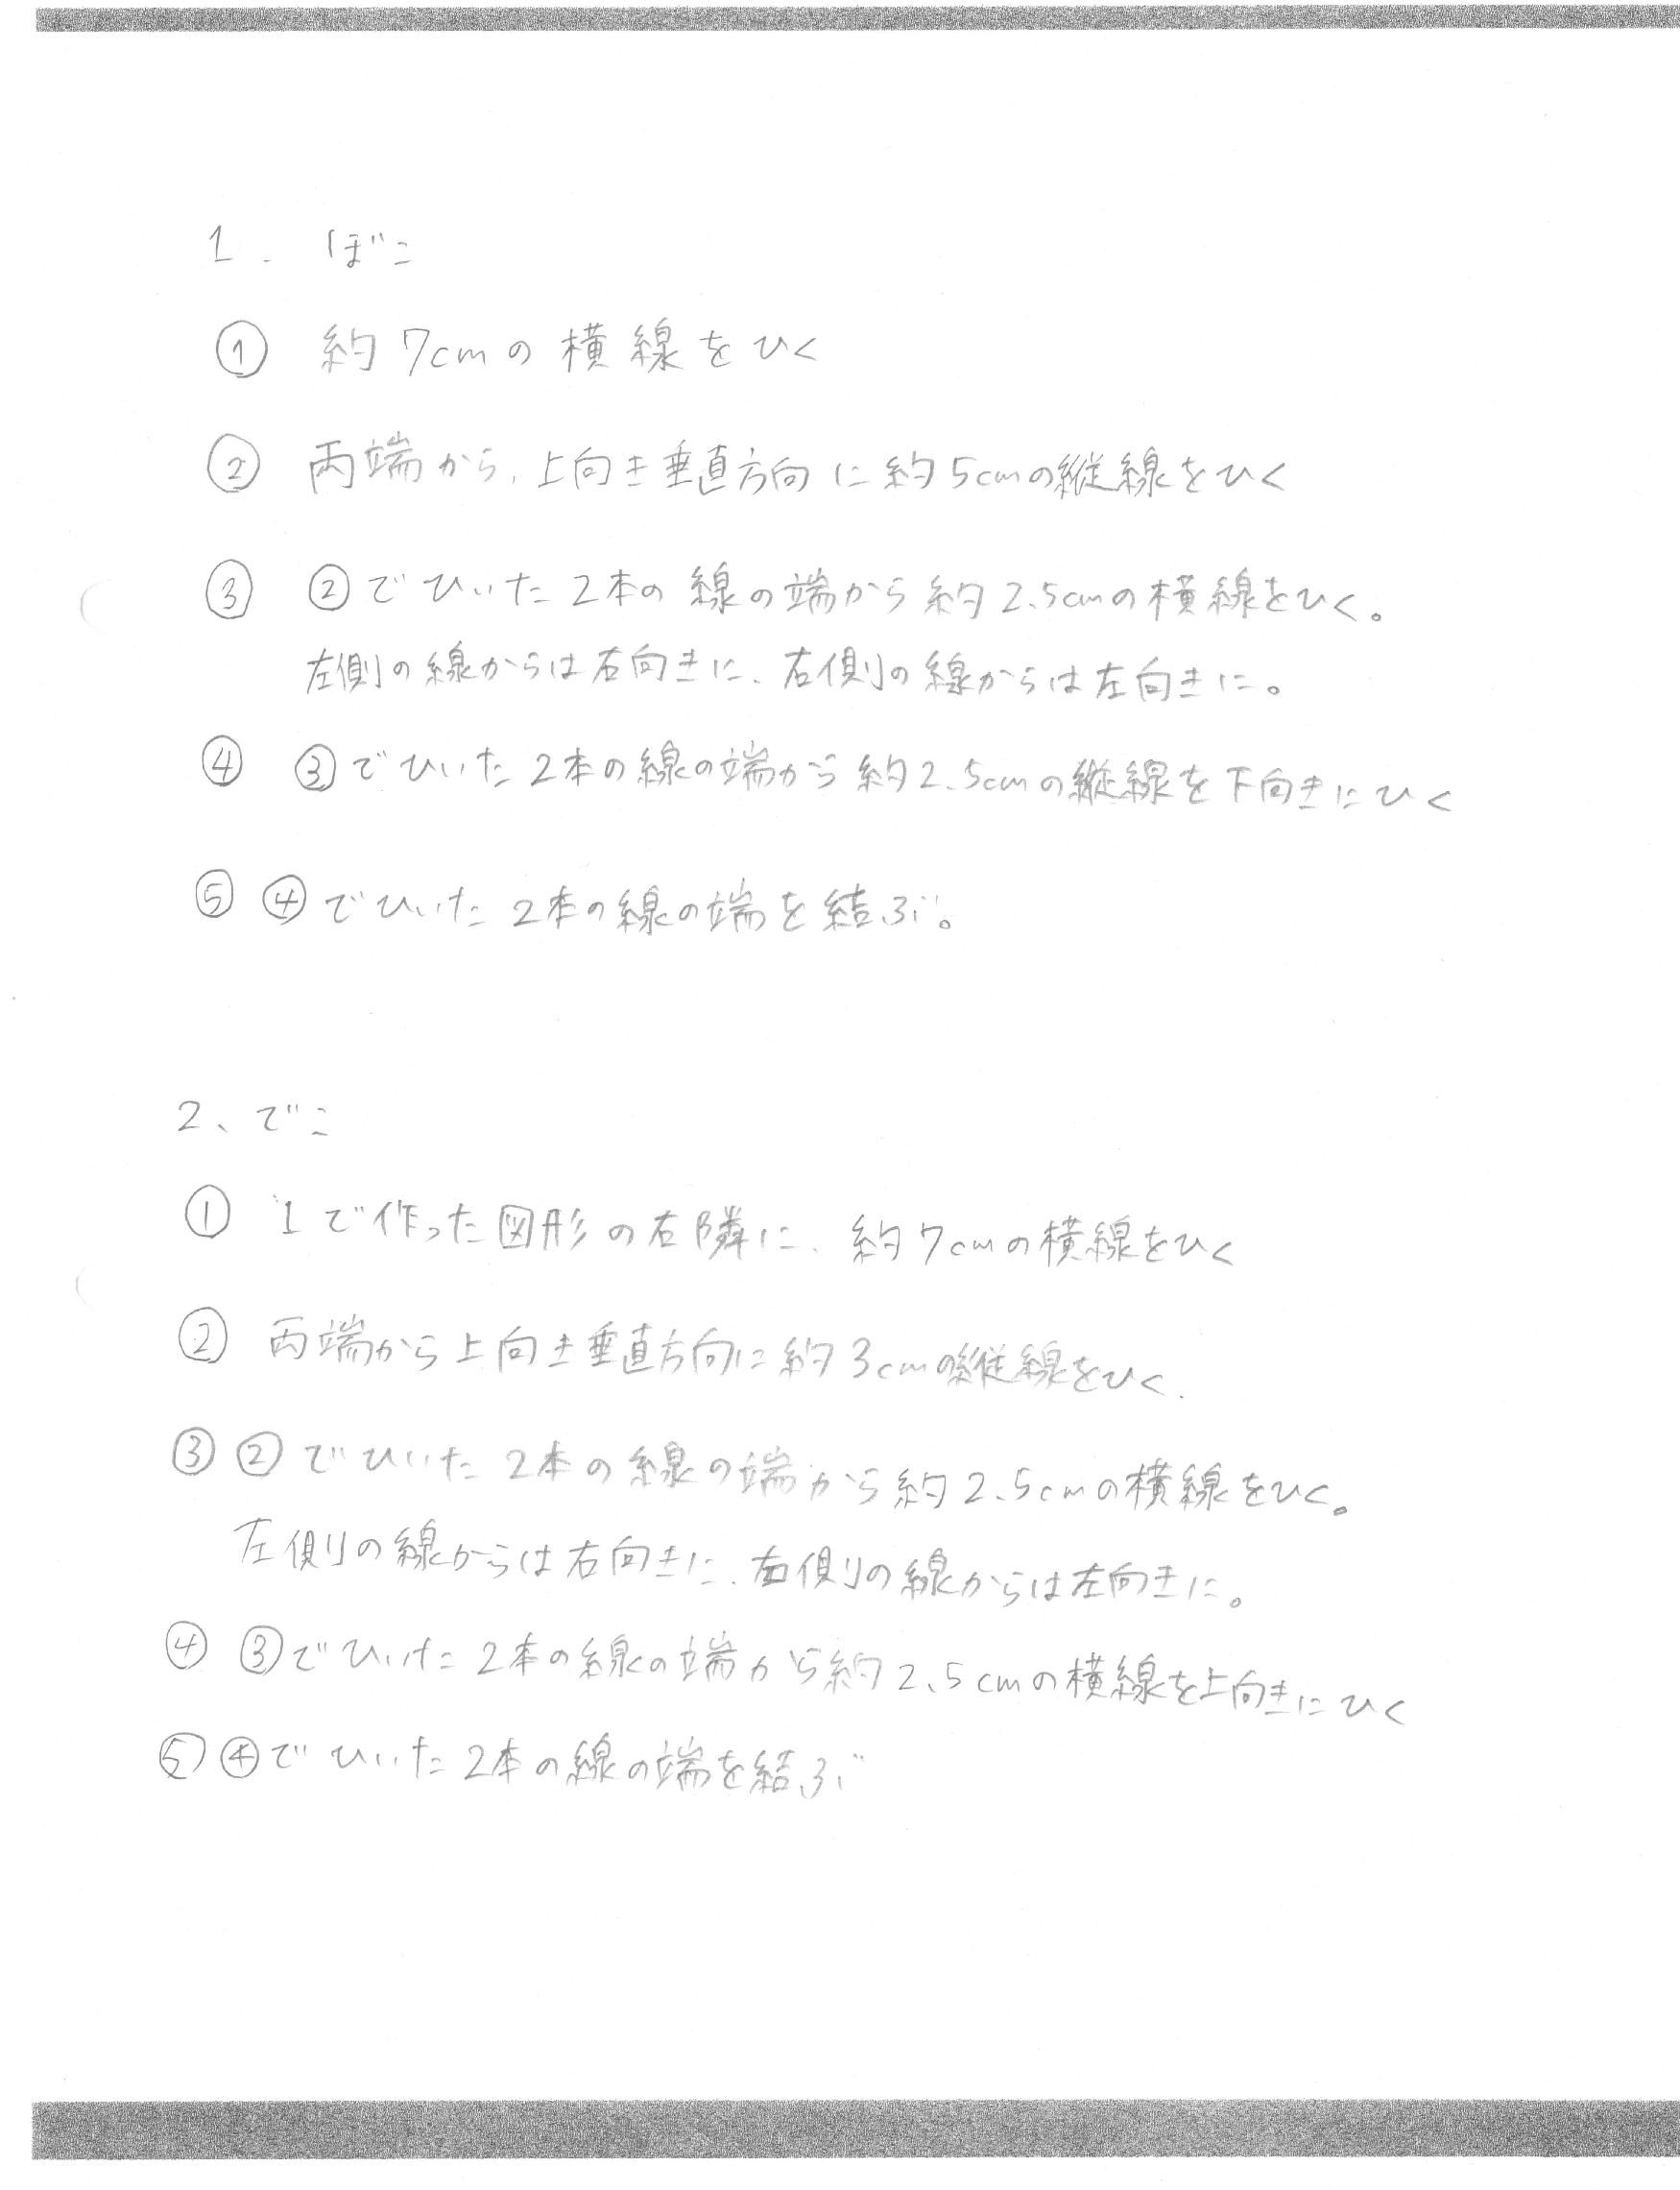 1. ぼこ
① 約7cmの横線をひく
② 両端から,上向き垂直方向に約5cmの縦線をひく
③ ②でひいた2本の線の端から約2.5cmの横線をひく。
左側の線からは右向きに、右側の線からは左向きに。
④ ③でひいた2本の線の端から約2.5cmの縦線を下向きにひく
⑤ ④でひいた2本の線の端を結ぶ。
2、でこ
① 1で作った図形の右隣に、約7cmの横線をひく
② 両端から上向き垂直方向に約3cmの縦線をひく.
③ ②でひいた2本の線の端から約2.5cmの横線をひく。
左側の線からは右向きに、右側の線からは左向きに。
④ ③でひいた2本の線の端から約2.5cmの横線を上向きにひく
⑤ ④でひいた2本の線の端を結ぶ